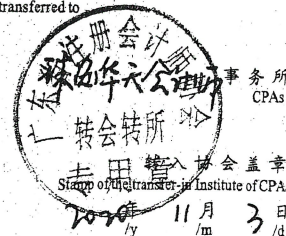 transferred to
华天会 事务所
CPAs
广东 注册会计师 会
转会转所
专用章
转入协会盖章
Stamp of the transfer-in Institute of CPA
2020年 11月 3日
/y /m /d